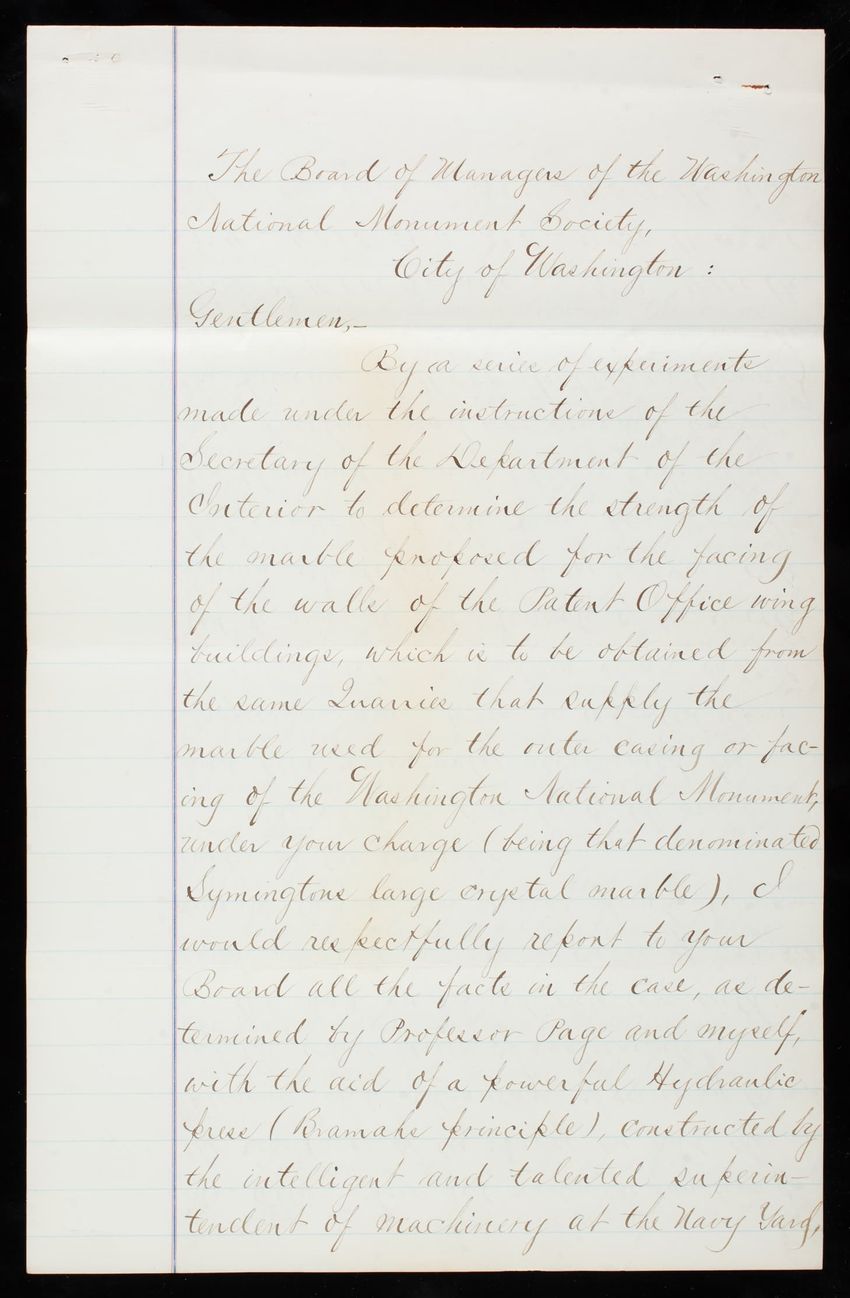 The Board of Managers of the Washington
National Monument Society,
City of Washington :
Gentlemen,—
By a series of experiments
made under the instructions of the
Secretary of the Department of the
Interior to determine the strength of
the marble proposed for the facing
of the walls of the Patent Office wing
buildings, which is to be obtained from
the same Quarries that supply the
marble used for the outer casing or fac-
ing of the Washington National Monument,
under your charge (being that denominated
Symingtons large crystal marble), I
would respectfully report to your
Board all the facts in the case, as de-
termined by Professor Page and myself,
with the aid of a powerful Hydraulic
press (Bramahs principle), constructed by
the intelligent and talented superin-
tendent of machinery at the Navy Yard,